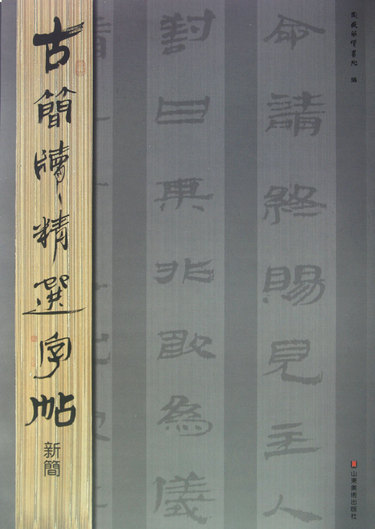 古簡牘精選字帖
新簡
命請終賜見主人
對曰某非敢為儀
編
山東美術出版社